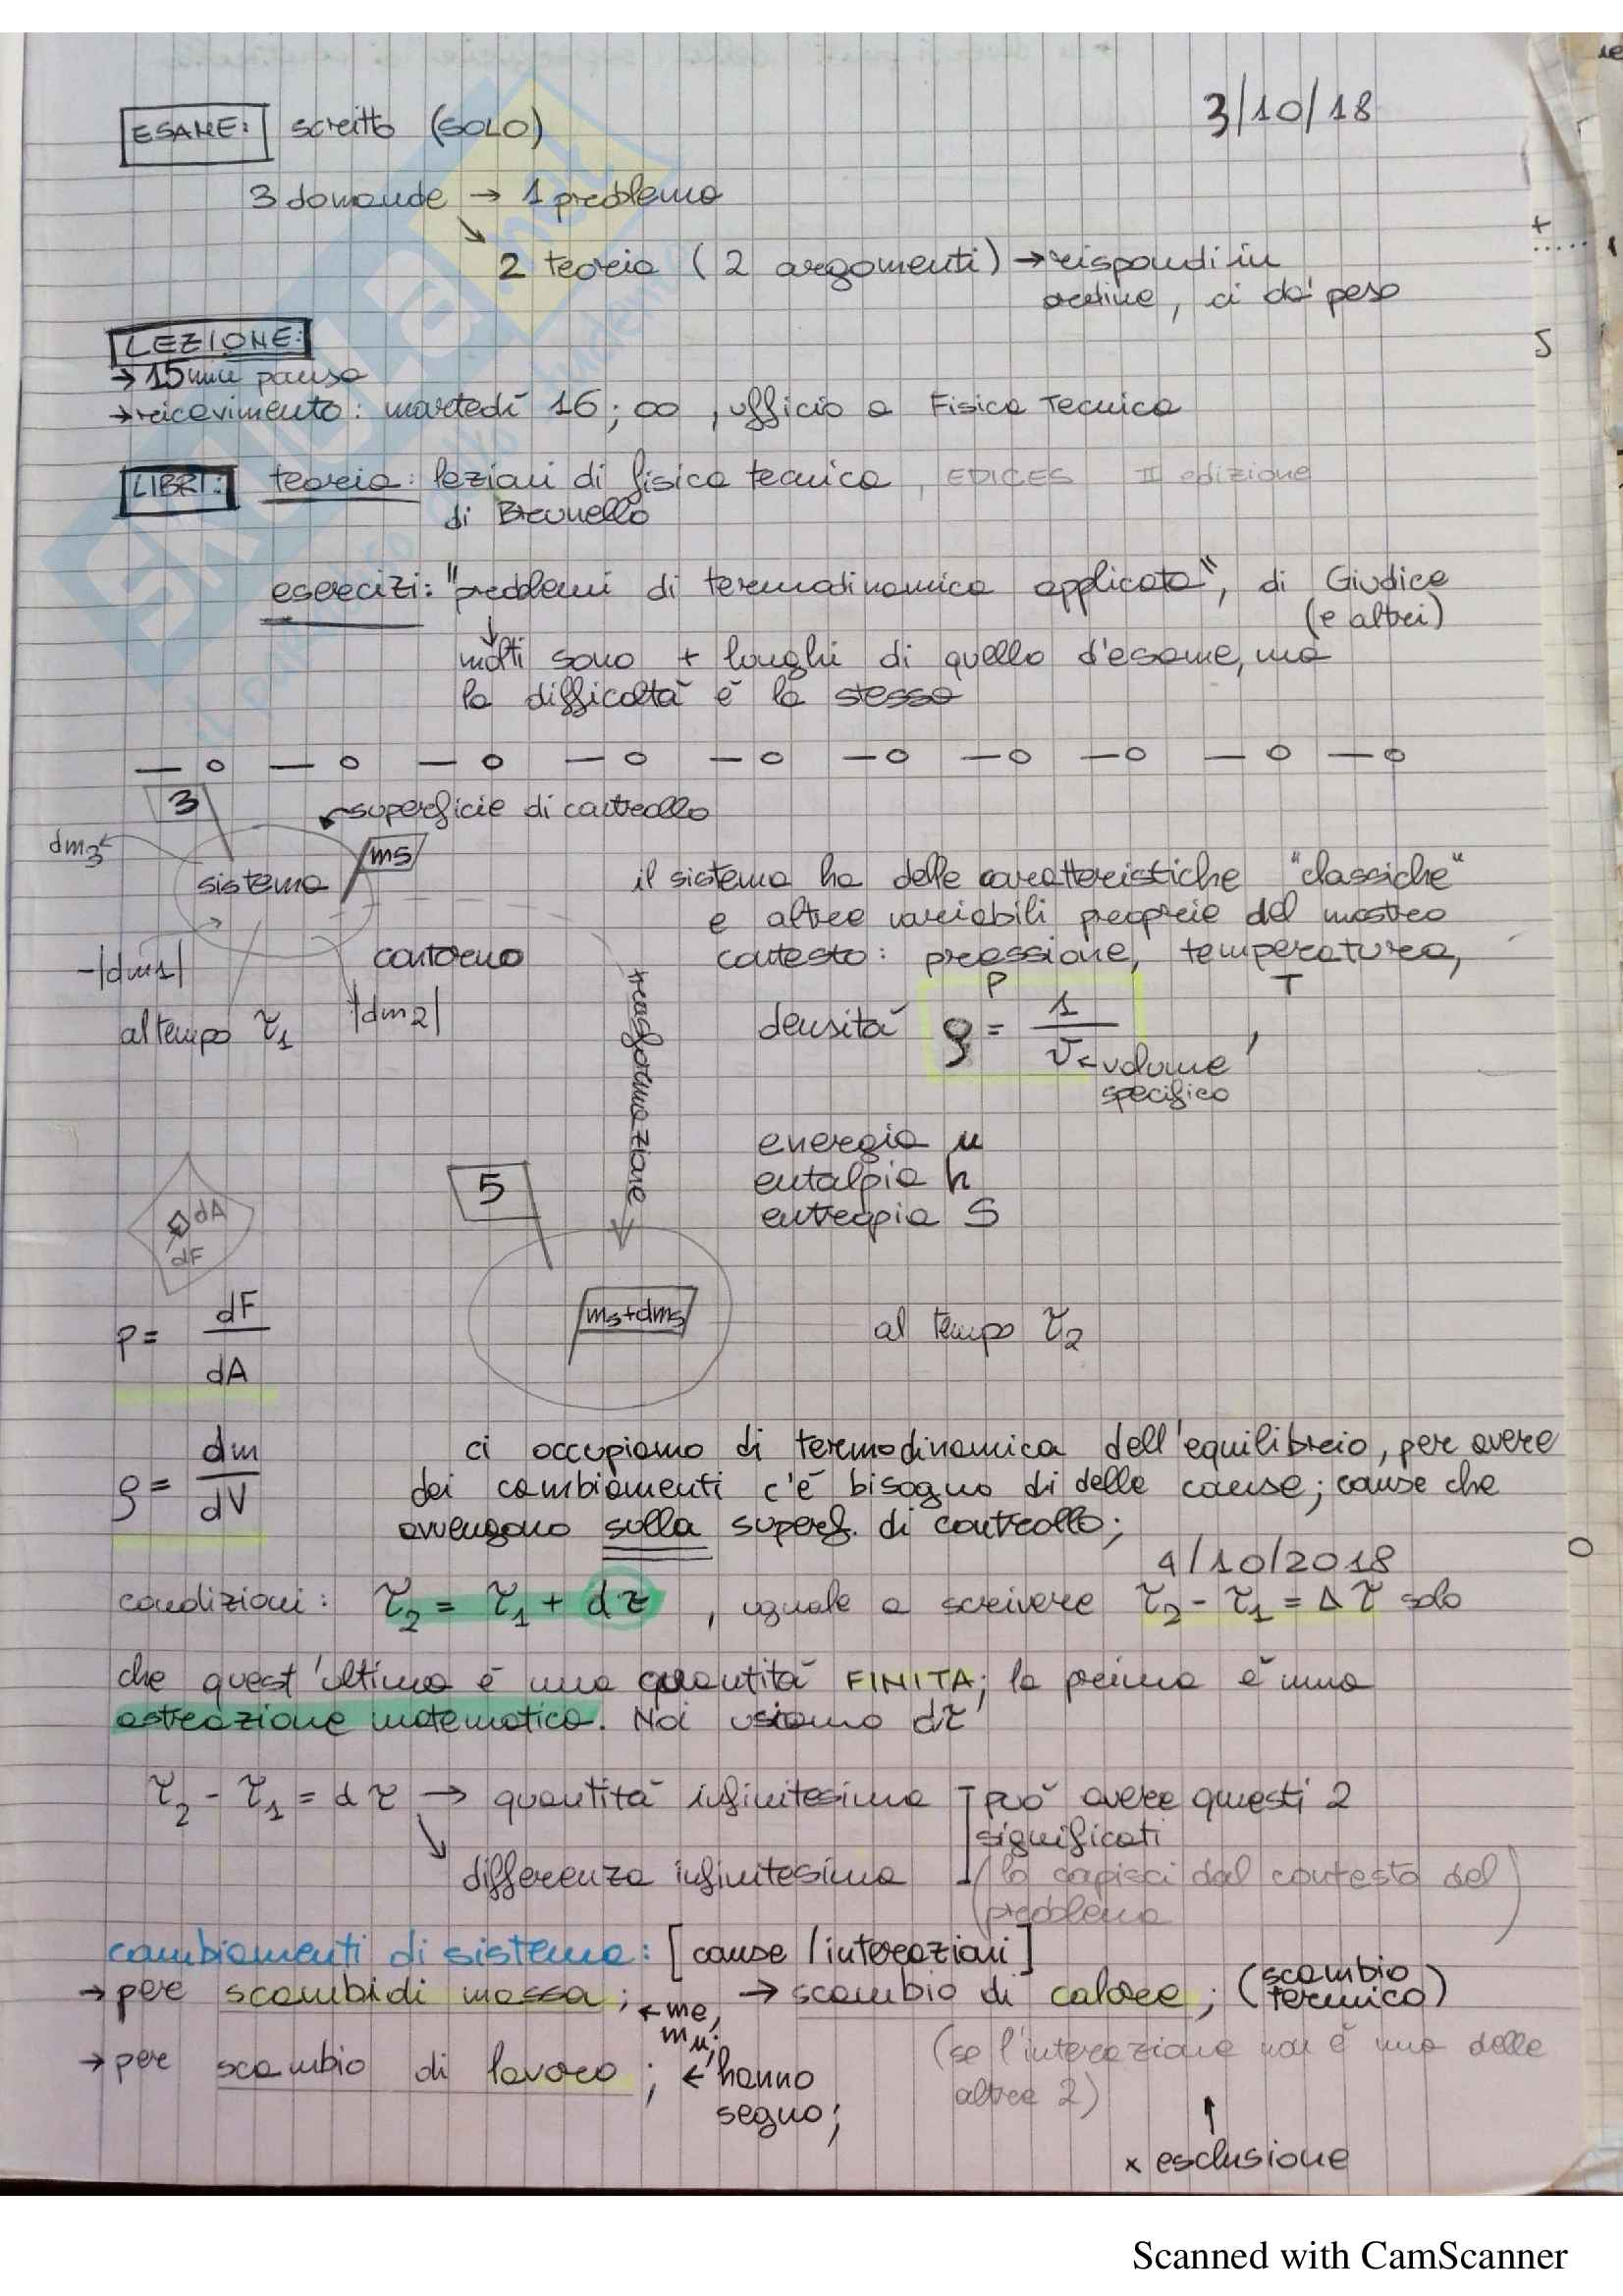 3/10/18
ESAME: scritto (SOLO)
3 domande → 1 problema
↘ 2 teoria (2 argomenti) → rispondi in
ordine, ci dà peso
LEZIONE:
→ 15 min pausa
→ ricevimento: martedì 16;00, ufficio a Fisica Tecnica
LIBRI: teoria: lezioni di fisica tecnica, EDICES II edizione
di Brunello
esercizi: "problemi di termodinamica applicata", di Giudice
(e altri)
↓
molti sono + lunghi di quello d'esame, ma
la difficoltà è la stessa
3
superficie di controllo
dm3
ms
sistema
il sistema ha delle caratteristiche "classiche"
e altre variabili proprie del nostro
-|dm1|
contorno
contesto: pressione, temperatura,
P T
al tempo τ1
|dm2|
trasformazione
densità ρ = 1/v ← volume specifico,
energia u
5
entalpia h
entropia S
dA
dF
ms+dms
al tempo τ2
p = dF/dA
ρ = dm/dV
ci occupiamo di termodinamica dell'equilibrio, per avere
dei cambiamenti c'è bisogno di delle cause; cause che
avvengono sulla superf. di controllo;
4/10/2018
condizioni: τ2 = τ1 + dτ, uguale a scrivere τ2 - τ1 = Δτ solo
che quest'ultima è una quantità FINITA; la prima è una
astrazione matematica. Noi usiamo dτ
τ2 - τ1 = dτ → quantità infinitesima può avere questi 2
significati
↘ differenza infinitesima (lo capisci dal contesto del
problema)
cambiamenti di sistema: [cause / interazioni]
→ per scambi di massa; → scambio di calore; (scambio
termico)
← me,
mu;
→ per scambio di lavoro; ← hanno
segno;
(se l'interazione non è una delle
altre 2)
↑
x esclusione
Scanned with CamScanner